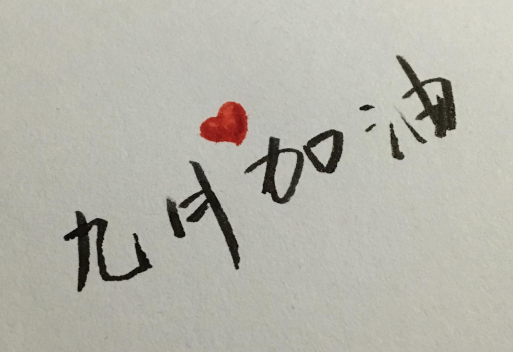 九月加油